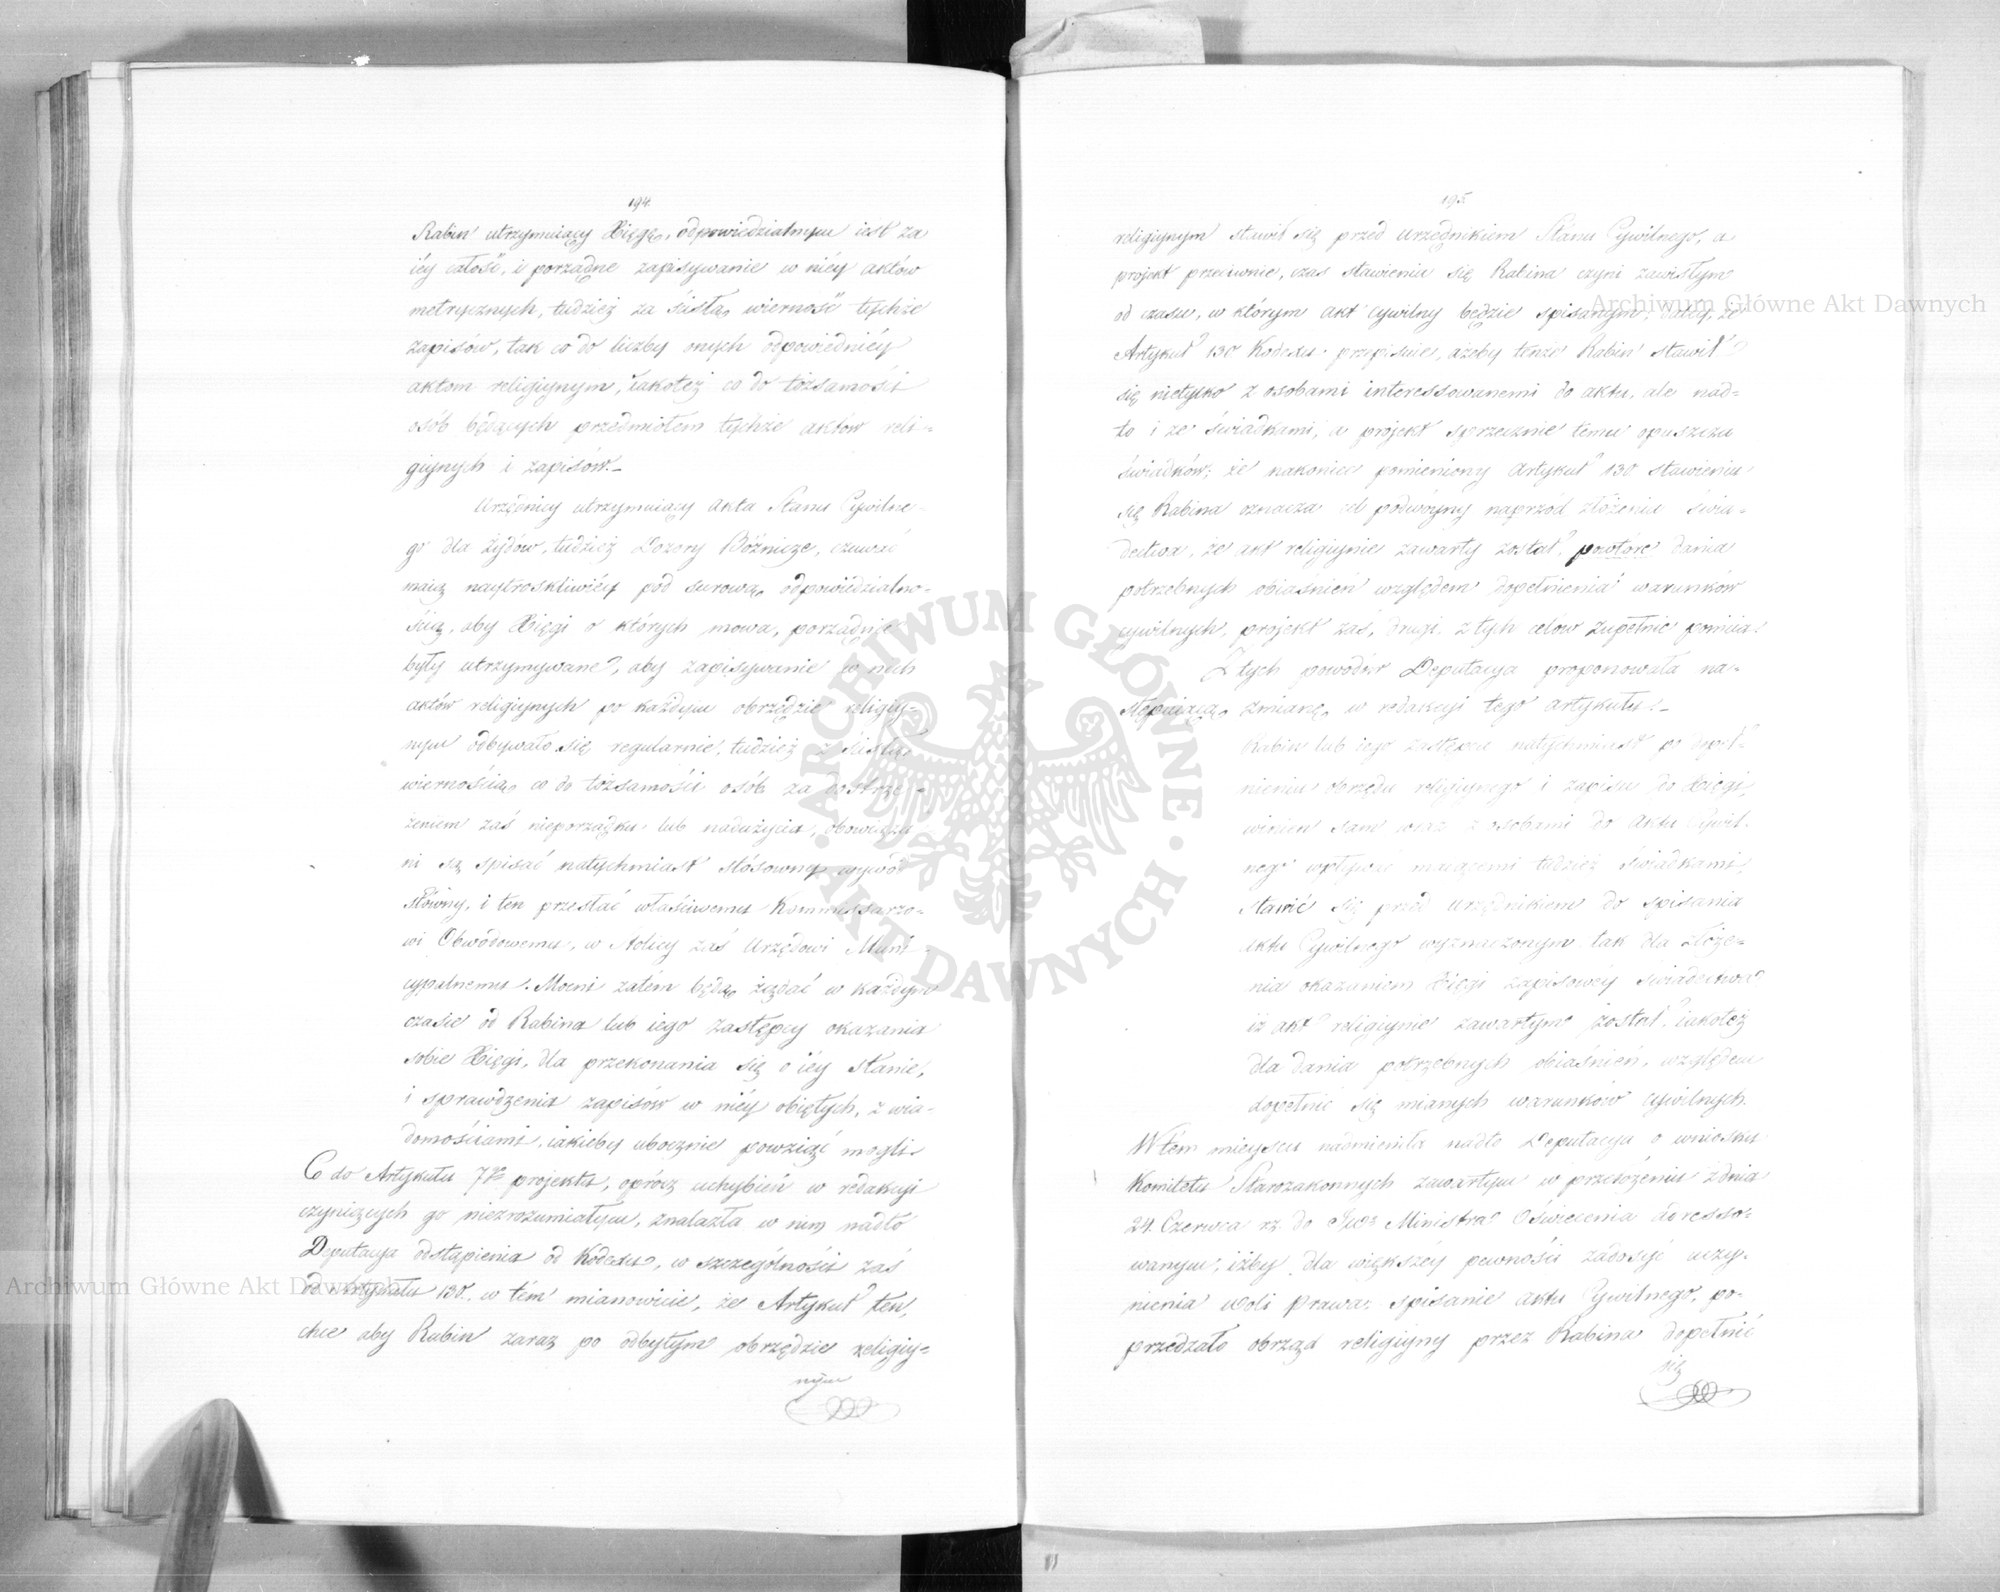 194.
Rabin utrzymuiący Xięgę, odpowiedzialnym iest za
iéy całość, i porządne zapisywanie w niéy aktów
metrycznych, tudzież za ścisłą wierność tychże
zapisów, tak co do liczby onych odpowiedniéy
aktom religiynym, iakoteż co do tożsamości
osób będących przedmiotem tychże aktów reli-
giynych i zapisów.-
Urzędnicy utrzymuiący Akta Stanu Cywilne-
go dla Żydów, tudzież Dozory Bóżnicze, czuwać
maią naytroskliwiéy pod surową odpowiedzialno-
ścią, aby Xięgi o których mowa, porządnie
były utrzymywane, aby zapisywanie w nich
aktów religiynych po każdym obrzędzie religiy-
nym odbywało się regularnie, tudzież z ścisłą
wiernością co do tożsamości osób za dostrze-
żeniem zaś nieporządku lub nadużycia, obowiąza
ni są spisać natychmiast stósowny wywód
słówny, i ten przesłać właściwemu Kommissarzo-
wi Obwodowemu, w Stolicy zaś Urzędowi Muni-
cypalnemu. Mocni zatém będą żądać w każdym
czasie od Rabina lub iego zastępcy okazania
sobie Xięgi, dla przekonania się o iéy stanie,
i sprawdzenia zapisów w niéy obiętych, z wia-
domościami, iakieby ubocznie powziąć mogli.
Co do Artykułu 7go projektu, oprócz uchybień w redakcyi
czyniących go niezrozumiałym, znalazła w nim nadto
Deputacya odstąpienia od Kodexu, w szczególności zaś
od Artykułu 130. w tém mianowicie, że Artykuł ten,
chce aby Rabin zaraz po odbytym obrzędzie religiy-
nym
195.
religiynym stawił się przed Urzędnikiem Stanu Cywilnego, a
projekt przeciwnie, czas stawienia się Rabina czyni zawisłym
od czasu, w którym akt cywilny będzie spisanym; daléy, że
Artykuł 130 Kodexu przepisuie, ażeby tenże Rabin stawił
się nietylko z osobami interessowanemi do aktu, ale nad-
to i ze świadkami, a projekt sprzecznie temu opuszcza
świadków; że nakoniec pomieniony Artykuł 130 stawieniu
się Rabina oznacza cel podwóyny naprzód złożenia świa-
dectwa, że akt religiynie zawarty został, powtóre dania
potrzebnych obiaśnień względem dopełnienia warunków
cywilnych, projekt zaś, drugi z tych celów zupełnie pomiia.
Z tych powodów Deputacya proponowała na-
stępuiącą zmianę w redakcyi tego artykułu:-
Rabin lub iego zastępca natychmiast po dopeł-
nieniu obrzędu religiynego i zapisu do Xięgi,
winien sam wraz z osobami do Aktu Cywil-
nego wpływać maiącemi tudzież świadkami,
stawić się przed Urzędnikiem do spisania
Aktu Cywilnego wyznaczonym tak dla złoże-
nia okazaniem Xięgi zapisowéy świadectwa,
iż akt religiynie zawartym został, iakoteż
dla dania potrzebnych obiaśnień, względem
dopełnić się mianych warunków cywilnych.
W tém mieyscu nadmieniła nadto Deputacya o wniosku
Komitetu Starozakonnych zawartym w przełożeniu z dnia
24. Czerwca rz. do Ministra Oświecenia adresso-
wanym, iżby dla większéy pewności zadosyć uczy-
nienia woli Prawa, spisanie aktu Cywilnego, po-
przedzało obrząd religiyny przez Rabina dopełnić
się
Archiwum Główne Akt Dawnych
Archiwum Główne Akt Dawnych
ARCHIWUM GŁÓWNE AKT DAWNYCH